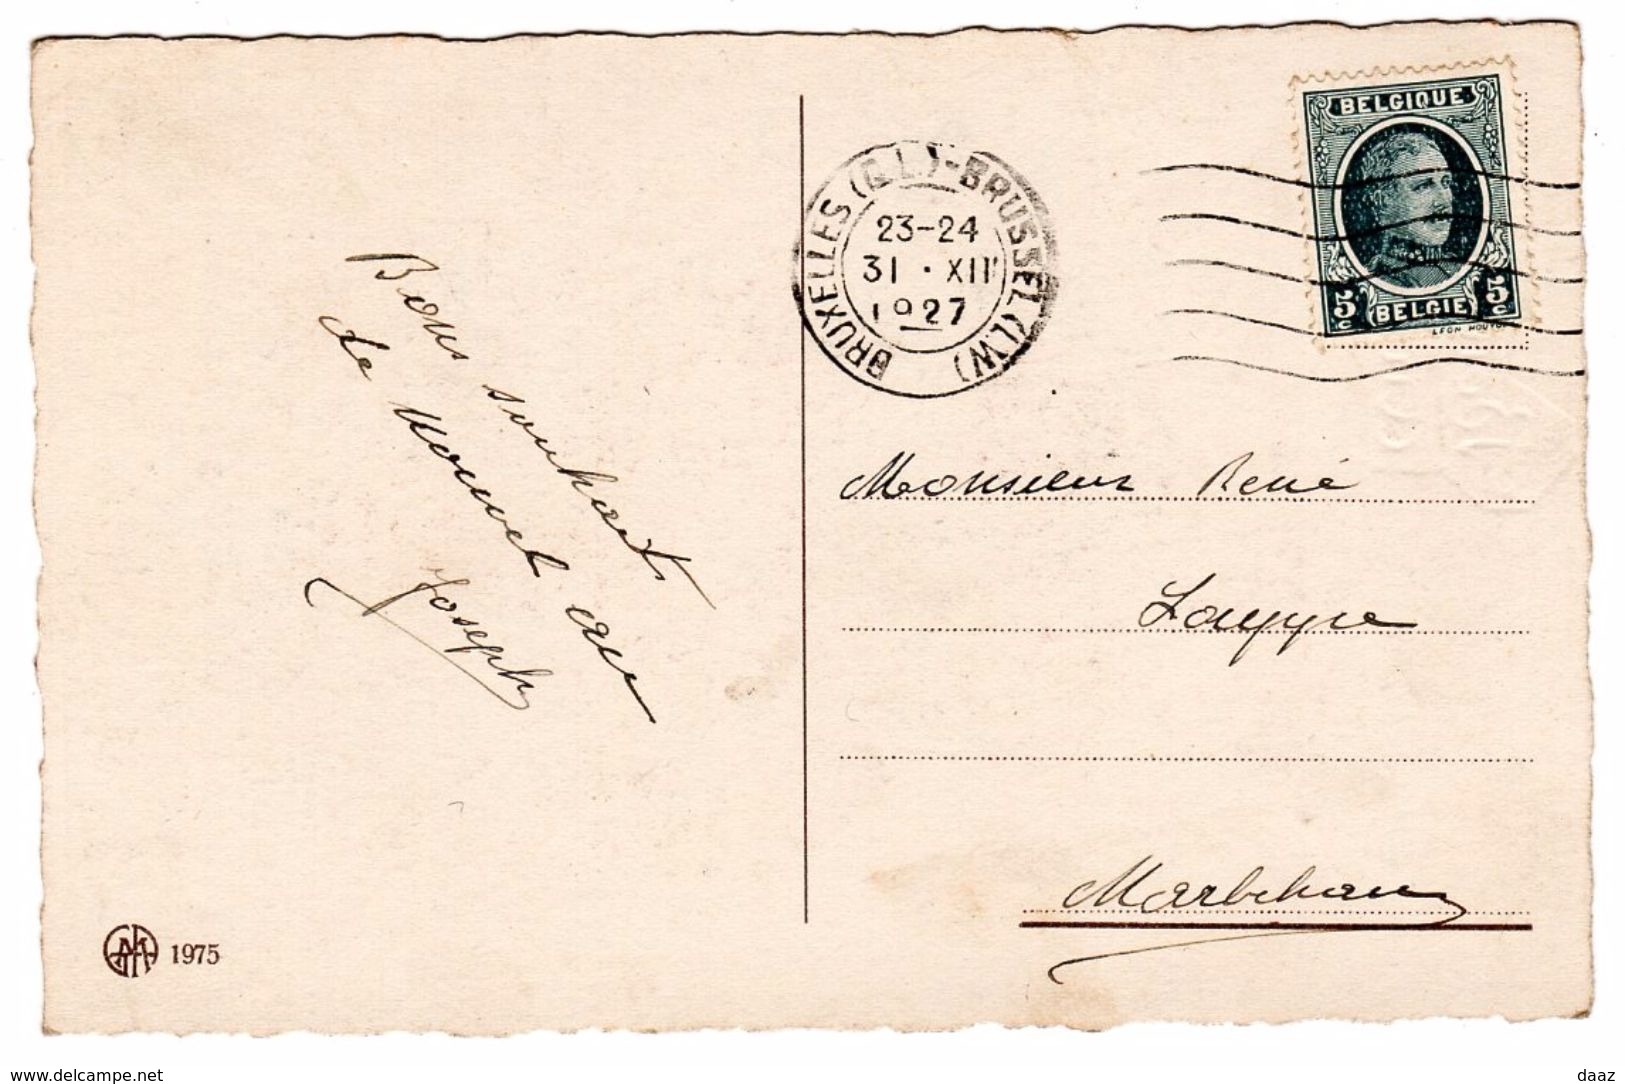 BRUXELLES (Q.L.)-BRUSSEL (L.W)
23-24
31 · XII
1927
BELGIQUE
5 c
BELGIE
5 c
LEON HOUYOUX
Bons souhaits
de nouvel an
Joseph
Monsieur René
Louppe
Marbehan
1975
www.delcampe.net
daaz